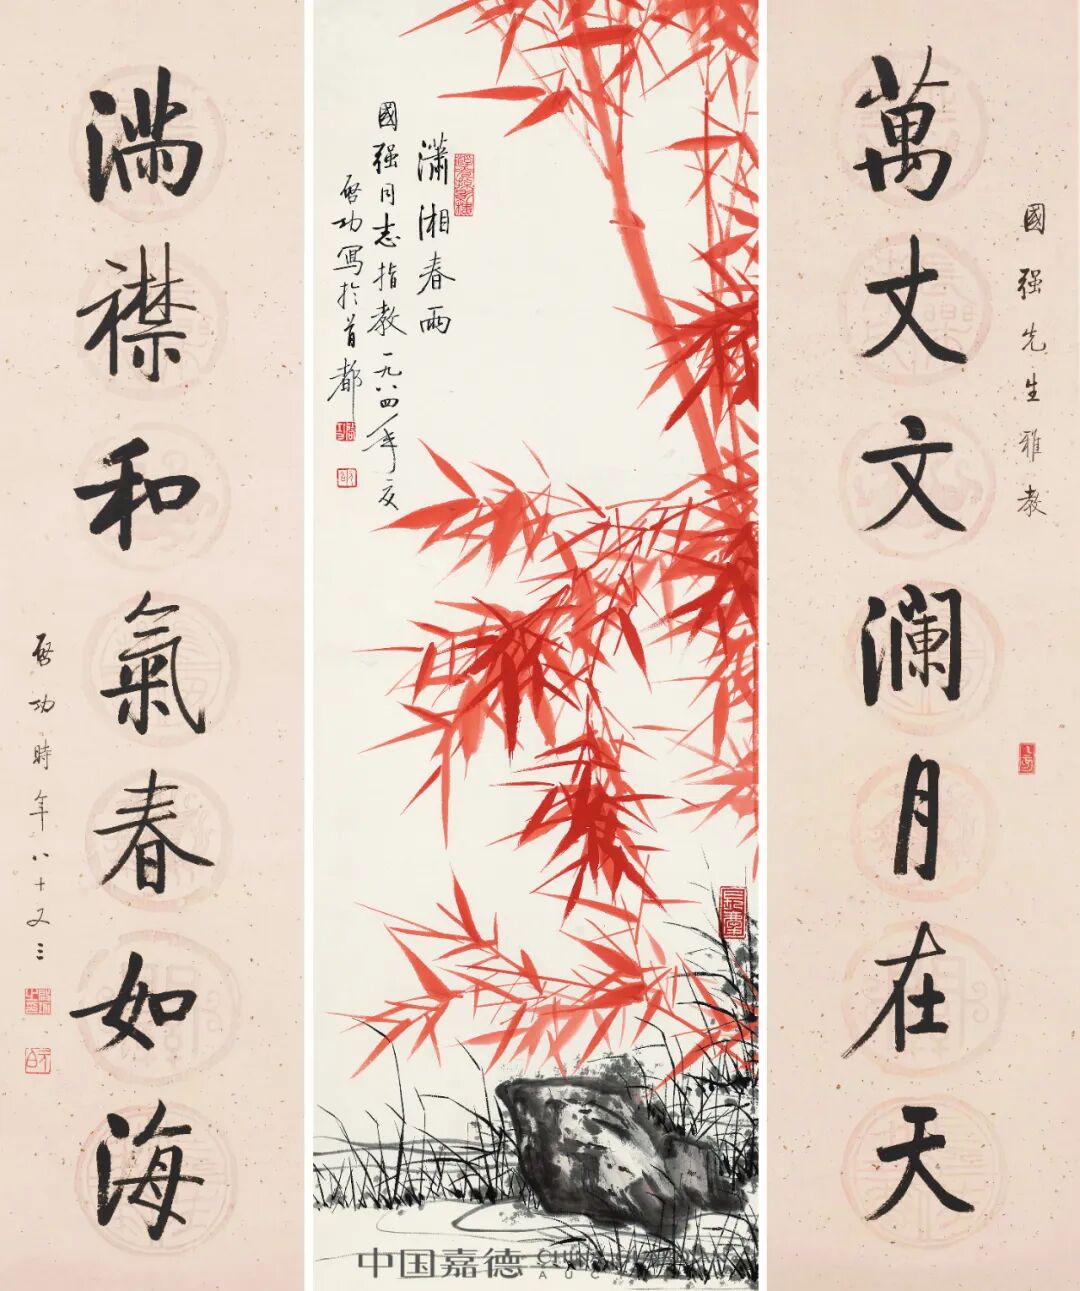 國强先生雅教
萬丈文瀾月在天
瀟湘春雨
國强同志指教一九八四年夏
啓功寫於首都
滿襟和氣春如海
啓功時年八十又三
中国嘉德